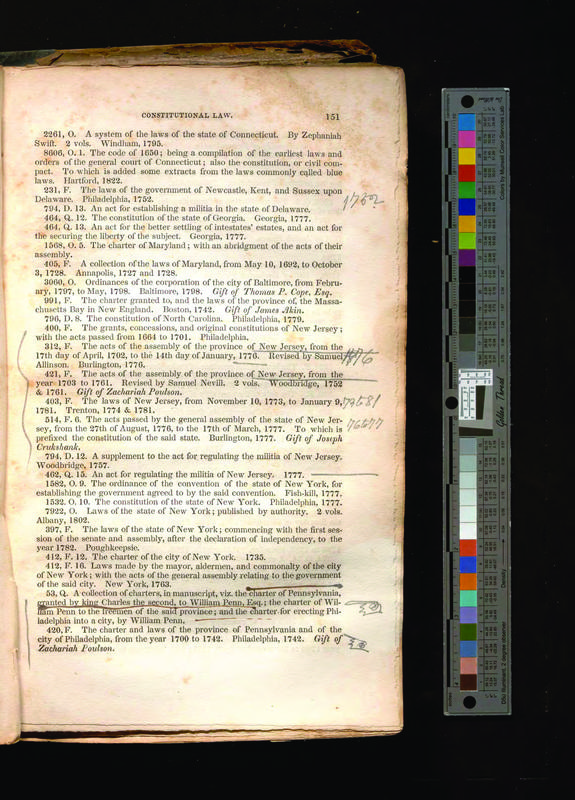 CONSTITUTIONAL LAW. 151
2261, O. A system of the laws of the state of Connecticut. By Zephaniah
Swift. 2 vols. Windham, 1795.
8606, O. 1. The code of 1650; being a compilation of the earliest laws and
orders of the general court of Connecticut; also the constitution, or civil com-
pact. To which is added some extracts from the laws commonly called blue
laws. Hartford, 1822.
231, F. The laws of the government of Newcastle, Kent, and Sussex upon
Delaware. Philadelphia, 1752.
1752
794, D. 13. An act for establishing a militia in the state of Delaware.
464, Q. 12. The constitution of the state of Georgia. Georgia, 1777.
464, Q. 13. An act for the better settling of intestates' estates, and an act for
the securing the liberty of the subject. Georgia, 1777.
1568, O. 5. The charter of Maryland; with an abridgment of the acts of their
assembly.
405, F. A collection of the laws of Maryland, from May 10, 1692, to October
3, 1728. Annapolis, 1727 and 1728.
3060, O. Ordinances of the corporation of the city of Baltimore, from Febru-
ary, 1797, to May, 1798. Baltimore, 1798. Gift of Thomas P. Cope, Esq.
991, F. The charter granted to, and the laws of the province of, the Massa-
chusetts Bay in New England. Boston, 1742. Gift of James Akin.
796, D. 8. The constitution of North Carolina. Philadelphia, 1779.
400, F. The grants, concessions, and original constitutions of New Jersey;
with the acts passed from 1664 to 1701. Philadelphia.
312, F. The acts of the assembly of the province of New Jersey, from the
17th day of April, 1702, to the 14th day of January, 1776. Revised by Samuel
Allinson. Burlington, 1776.
421, F. The acts of the assembly of the province of New Jersey, from the
year 1703 to 1761. Revised by Samuel Nevill. 2 vols. Woodbridge, 1752
& 1761. Gift of Zachariah Poulson.
403, F. The laws of New Jersey, from November 10, 1773, to January 9,
1781. Trenton, 1774 & 1781.
514, F. 6. The acts passed by the general assembly of the state of New Jer-
sey, from the 27th of August, 1776, to the 17th of March, 1777. To which is
prefixed the constitution of the said state. Burlington, 1777. Gift of Joseph
Crukshank.
794, D. 12. A supplement to the act for regulating the militia of New Jersey.
Woodbridge, 1757.
462, Q. 15. An act for regulating the militia of New Jersey. 1777.
1582, O. 9. The ordinance of the convention of the state of New York, for
establishing the government agreed to by the said convention. Fish-kill, 1777.
1532, O. 10. The constitution of the state of New York. Philadelphia, 1777.
7922, O. Laws of the state of New York; published by authority. 2 vols.
Albany, 1802.
397, F. The laws of the state of New York; commencing with the first ses-
sion of the senate and assembly, after the declaration of independency, to the
year 1782. Poughkeepsie.
412, F. 12. The charter of the city of New York. 1735.
412, F. 16. Laws made by the mayor, aldermen, and commonalty of the city
of New York; with the acts of the general assembly relating to the government
of the said city. New York, 1763.
53, Q. A collection of charters, in manuscript, viz. the charter of Pennsylvania,
granted by king Charles the second, to William Penn, Esq.; the charter of Wil-
liam Penn to the freemen of the said province; and the charter for erecting Phi-
ladelphia into a city, by William Penn.
420, F. The charter and laws of the province of Pennsylvania and of the
city of Philadelphia, from the year 1700 to 1742. Philadelphia, 1742. Gift of
Zachariah Poulson.